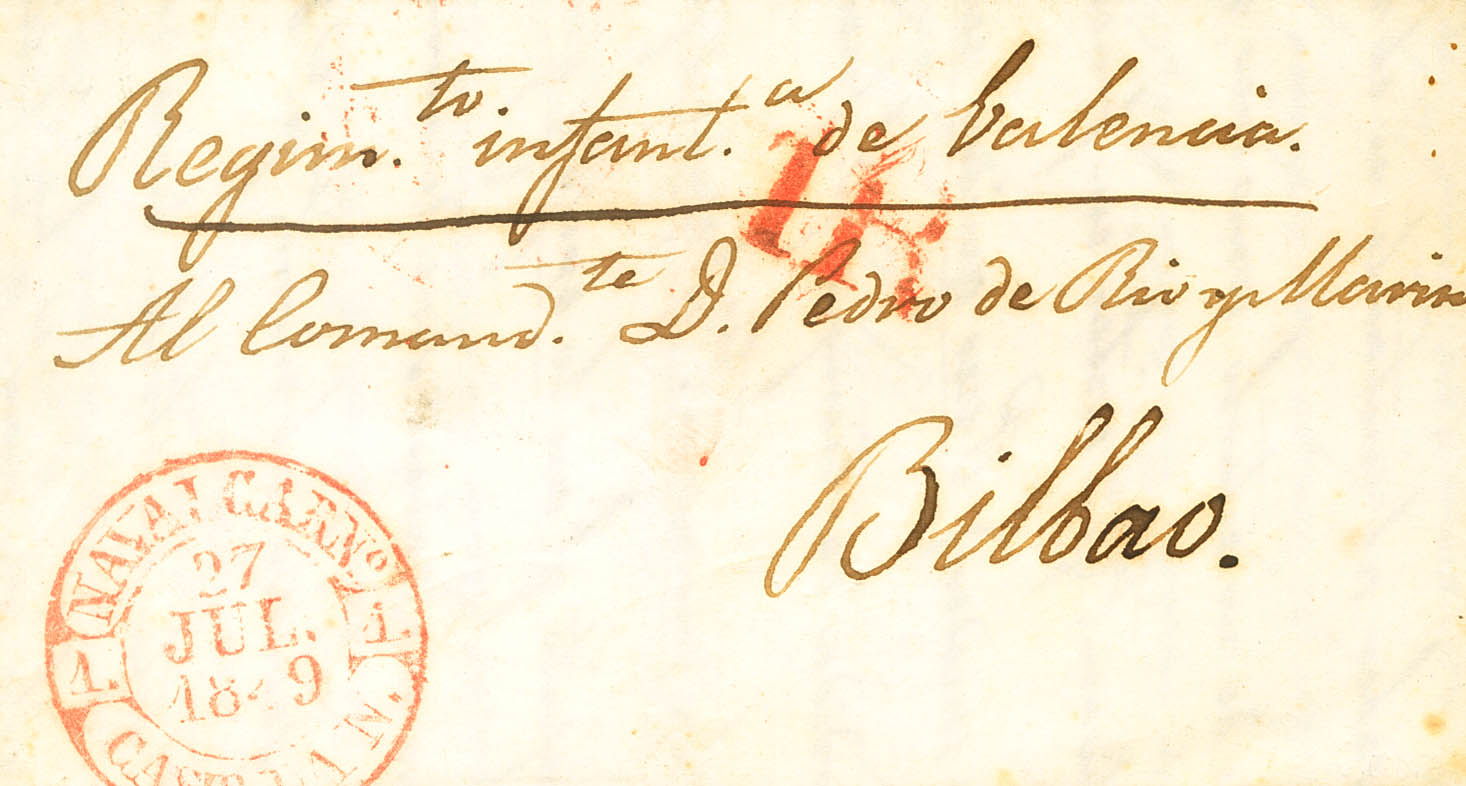 Regim.to infant.a de Valencia.
1R.
Al Comand.te D. Pedro de Rio y Marin
Bilbao.
NAVALCARNo.
27
JUL.
1849
1.
1.
CASTILLA N.